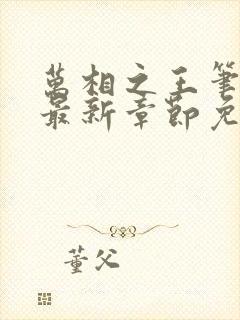 萬相之王筆
最新章節免
董父